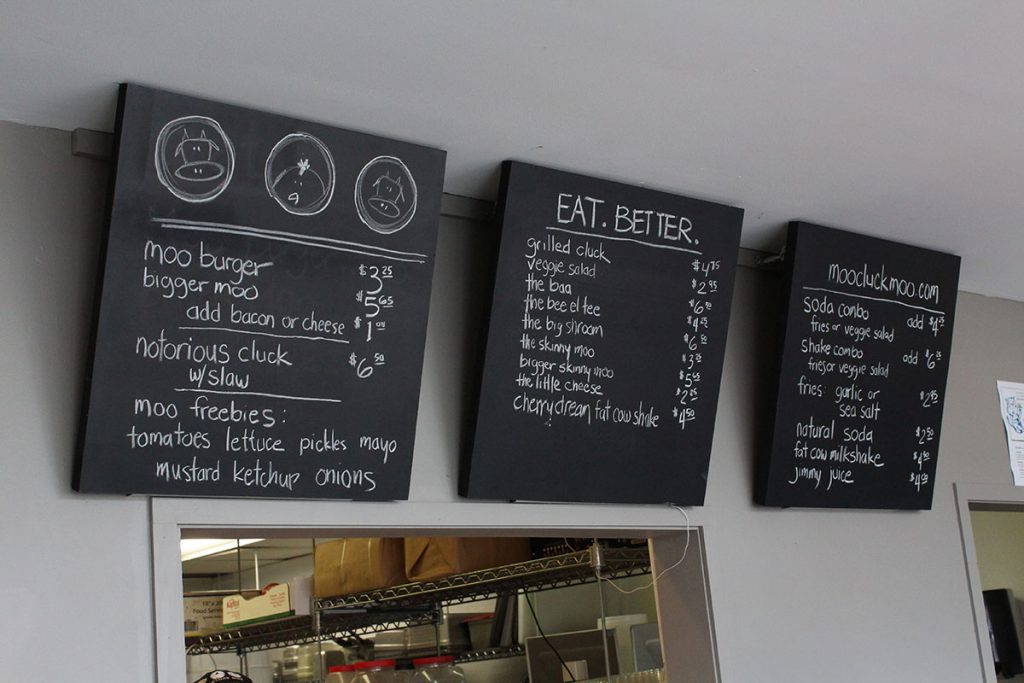 moo burger $3.25
bigger moo $5.65
add bacon or cheese $1.00
notorious cluck $6.50
w/slaw
moo freebies:
tomatoes lettuce pickles mayo
mustard ketchup onions
EAT. BETTER.
grilled cluck $4.75
veggie salad $2.95
the baa $6.50
the bee el tee $4.25
the big shroom $6.50
the skinny moo $3.25
bigger skinny moo $5.65
the little cheese
cherry dream fat cow shake $4.50
moocluckmoo.com
soda combo add $4.25
fries or veggie salad
shake combo add $6.25
fries or veggie salad
fries: garlic or $2.95
sea salt
natural soda $2.50
fat cow milkshake $4.50
jimmy juice
Food Service